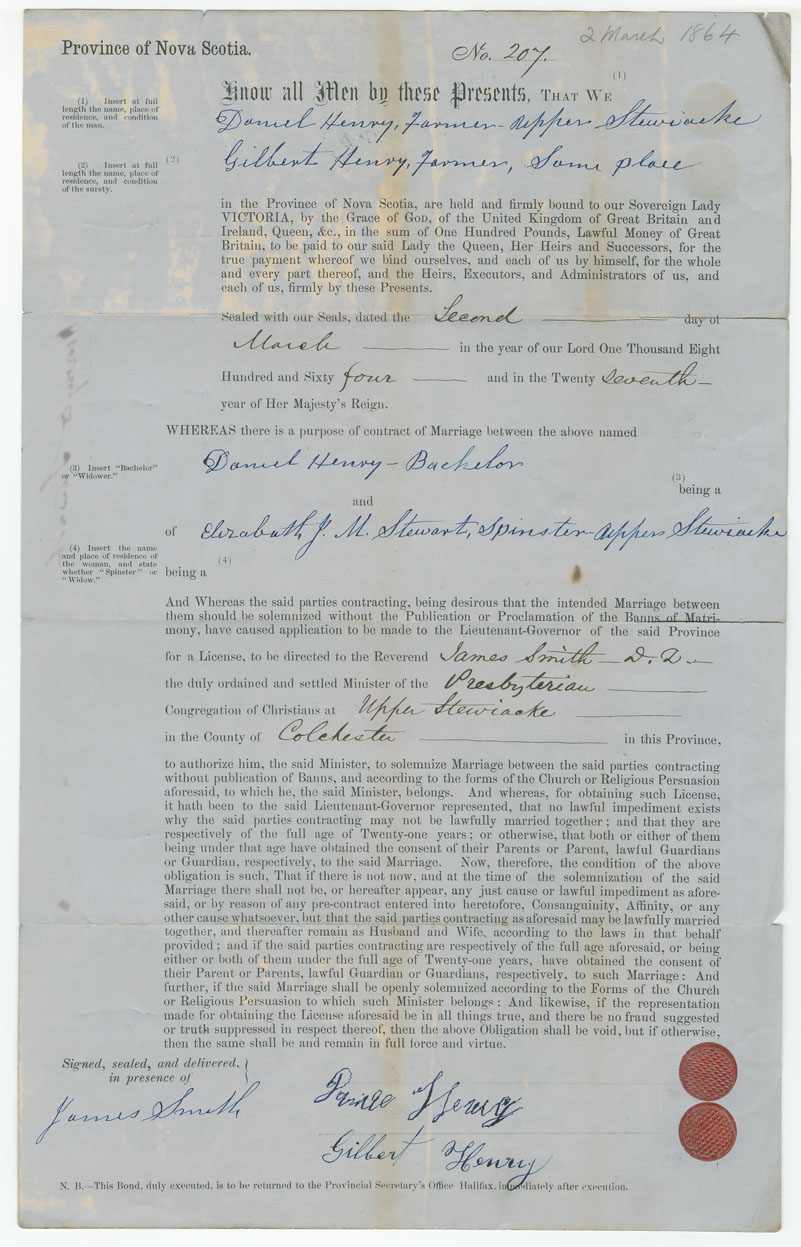 2 March 1864
Province of Nova Scotia.
No. 207.
(1)
Know all Men by these Presents, THAT WE
(1) Insert at full
length the name, place of
residence, and condition
of the man.
Daniel Henry, Farmer - Upper Stewiacke
(2) Insert at full
length the name, place of
residence, and condition
of the surety.
(2)
Gilbert Henry, Farmer, Same place
in the Province of Nova Scotia, are held and firmly bound to our Sovereign Lady
VICTORIA, by the Grace of GOD, of the United Kingdom of Great Britain and
Ireland, Queen, &c., in the sum of One Hundred Pounds, Lawful Money of Great
Britain, to be paid to our said Lady the Queen, Her Heirs and Successors, for the
true payment whereof we bind ourselves, and each of us by himself, for the whole
and every part thereof, and the Heirs, Executors, and Administrators of us, and
each of us, firmly by these Presents.
Sealed with our Seals, dated the Second day of
March in the year of our Lord One Thousand Eight
Hundred and Sixty four and in the Twenty seventh
year of Her Majesty's Reign.
WHEREAS there is a purpose of contract of Marriage between the above named
Daniel Henry - Bachelor
(3) Insert "Bachelor"
or "Widower."
(3)
being a
and
of Elizabeth J. M. Stewart, Spinster - Upper Stewiacke
(4) Insert the name
and place of residence of
the woman, and state
whether "Spinster" or
"Widow."
(4)
being a
And Whereas the said parties contracting, being desirous that the intended Marriage between
them should be solemnized without the Publication or Proclamation of the Banns of Matri-
mony, have caused application to be made to the Lieutenant-Governor of the said Province
for a License, to be directed to the Reverend James Smith - D. D. -
the duly ordained and settled Minister of the Presbyterian
Congregation of Christians at Upper Stewiacke
in the County of Colchester in this Province,
to authorize him, the said Minister, to solemnize Marriage between the said parties contracting
without publication of Banns, and according to the forms of the Church or Religious Persuasion
aforesaid, to which he, the said Minister, belongs. And whereas, for obtaining such License,
it hath been to the said Lieutenant-Governor represented, that no lawful impediment exists
why the said parties contracting may not be lawfully married together; and that they are
respectively of the full age of Twenty-one years; or otherwise, that both or either of them
being under that age have obtained the consent of their Parents or Parent, lawful Guardians
or Guardian, respectively, to the said Marriage. Now, therefore, the condition of the above
obligation is such, That if there is not now, and at the time of the solemnization of the said
Marriage there shall not be, or hereafter appear, any just cause or lawful impediment as afore-
said, or by reason of any pre-contract entered into heretofore, Consanguinity, Affinity, or any
other cause whatsoever, but that the said parties contracting as aforesaid may be lawfully married
together, and thereafter remain as Husband and Wife, according to the laws in that behalf
provided; and if the said parties contracting are respectively of the full age aforesaid, or being
either or both of them under the full age of Twenty-one years, have obtained the consent of
their Parent or Parents, lawful Guardian or Guardians, respectively, to such Marriage: And
further, if the said Marriage shall be openly solemnized according to the Forms of the Church
or Religious Persuasion to which such Minister belongs: And likewise, if the representation
made for obtaining the License aforesaid be in all things true, and there be no fraud suggested
or truth suppressed in respect thereof, then the above Obligation shall be void, but if otherwise,
then the same shall be and remain in full force and virtue.
Signed, sealed, and delivered,
in presence of
James Smith
Henry
Gilbert Henry
N. B.—This Bond, duly executed, is to be returned to the Provincial Secretary's Office Halifax, immediately after execution.